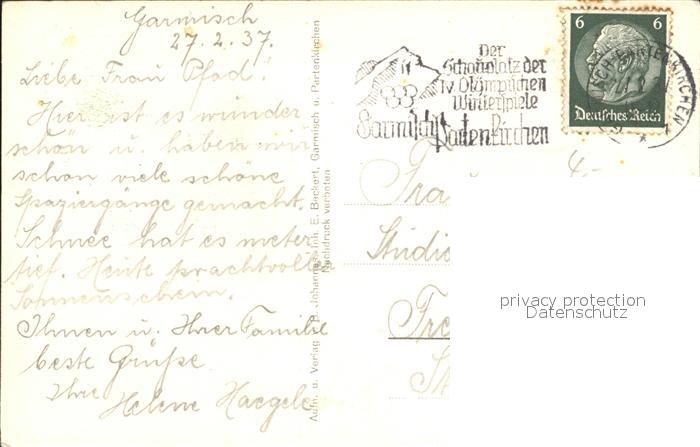 Garmisch
27.2.37.
Liebe Frau Pfad!
Hier ist es wunder
schön u. haben wir
schon viele schöne
Spaziergänge gemacht.
Schnee hat es meter
tief. Heute prachtvoll
Sonnenschein.
Ihnen u. Ihrer Familie
beste Grüße
Ihre
Helene Haegele
Aufn. u. Verlag B. Johannes, Inh. E. Beckert, Garmisch u. Partenkirchen
Nachdruck verboten
Der
Schauplatz der
IV. Olympischen
Winterspiele
Garmisch Partenkirchen
6 6
Deutsches Reich
CH-PARTENKIRCHEN
Fra
Studi
Fre
St
privacy protection
Datenschutz